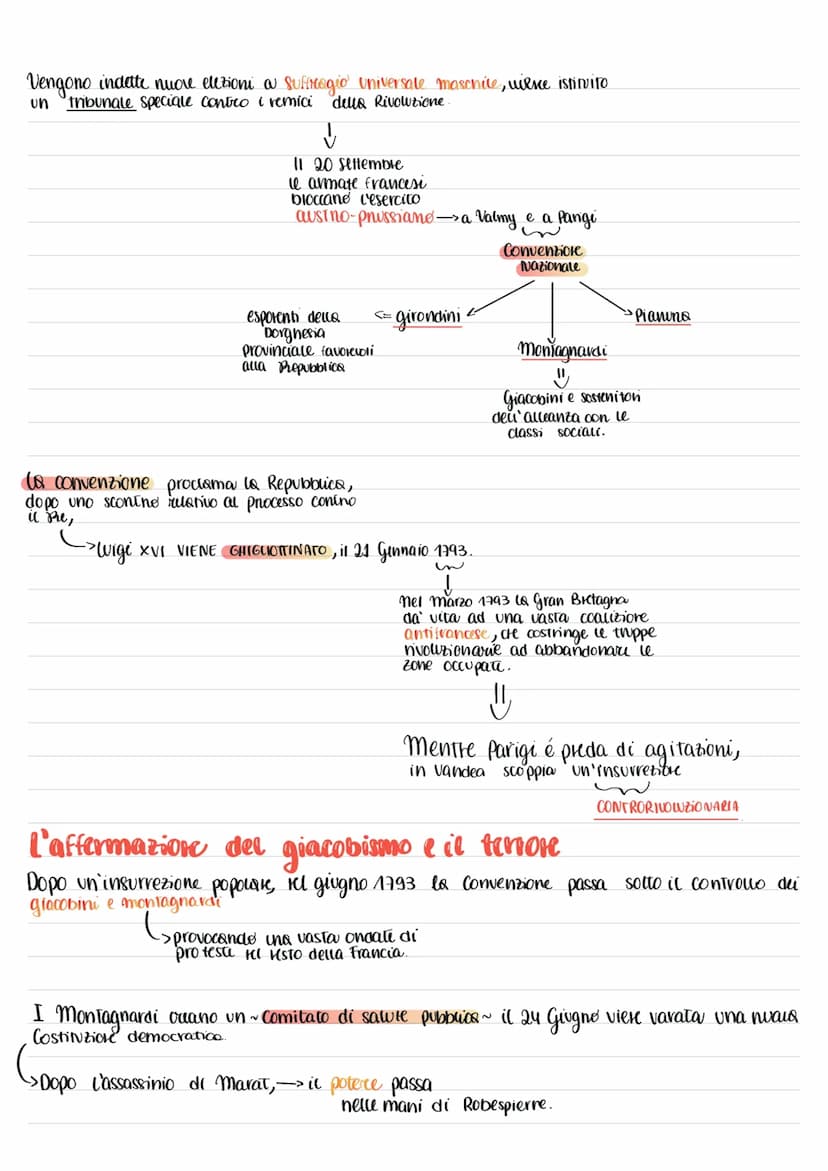 Vengono indette nuove elezioni a suffragio universale maschile, viene istituito
un tribunale speciale contro i nemici della Rivoluzione.
Il 20 settembre
le armate francesi
bloccano l'esercito
austro-prussiano → a Valmy e a Parigi
Convenzione
Nazionale
esponenti della
borghesia
provinciale favorevoli
alla Repubblica
⇐ girondini
Pianura
Montagnardi
Giacobini e sostenitori
dell'alleanza con le
classi sociali.
La convenzione proclama la Repubblica,
dopo uno scontro relativo al processo contro
il Re,
→ Luigi XVI VIENE GHIGLIOTTINATO, il 21 Gennaio 1793.
Nel marzo 1793 la Gran Bretagna
da' vita ad una vasta coalizione
antifrancese, che costringe le truppe
rivoluzionarie ad abbandonare le
zone occupate.
Mentre Parigi é preda di agitazioni,
in Vandea scoppia un'insurrezione
CONTRORIVOLUZIONARIA
L'affermazione del giacobismo e il terrore
Dopo un'insurrezione popolare, nel giugno 1793 la Convenzione passa sotto il controllo dei
giacobini e montagnardi
→ provocando una vasta ondate di
proteste nel resto della Francia.
I Montagnardi creano un ~ Comitato di salute pubblica ~ il 24 Giugno viene varata una nuova
Costituzione democratica.
→ Dopo l'assassinio di Marat, → il potere passa
nelle mani di Robespierre.